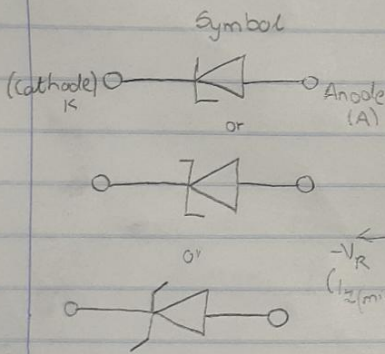 Symbol
(Cathode)
K
Anode
(A)
or
or
-VR
(Iz(mi